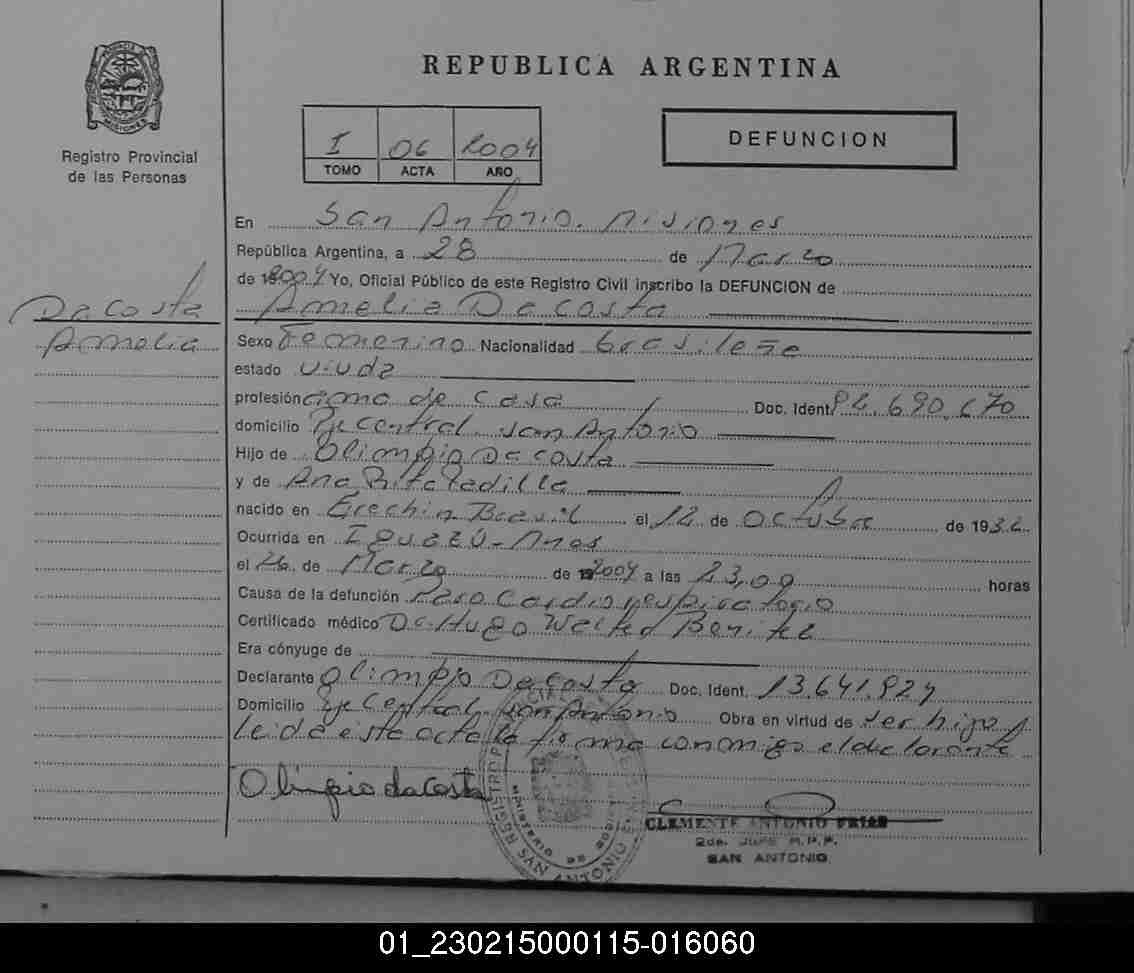 PROVINCIA DE
MISIONES
Registro Provincial
de las Personas
REPUBLICA ARGENTINA
I 06 2004
TOMO ACTA AÑO
DEFUNCION
En San Antonio. Misiones
República Argentina, a 28 de Marzo
de 2004 Yo, Oficial Público de este Registro Civil inscribo la DEFUNCION de
Da costa
Amelia Da costa
Amelia
Sexo Femenino Nacionalidad brasileñe
estado viuda
profesión ama de casa Doc. Ident. 92.690.670
domicilio Pje Central San Antonio
Hijo de Olimpio Da costa
y de Ana Rita Padilla
nacido en Erechin Brasil el 12 de Octubre de 1932
Ocurrida en Iguazú - Mnes
el 26 de Marzo de 2004 a las 23,00 horas
Causa de la defunción Paro Cardiorespiratorio
Certificado médico Dr. Hugo Benitez
Era cónyuge de
Declarante Olimpio Da costa Doc. Ident. 13.641.924
Domicilio Pje Central San Antonio Obra en virtud de ser hijo y
leida esta acta la firma conmigo el declarante
Olimpio da costa
REGISTRO
MINISTERIO DE GOBIERNO
SAN ANTONIO
CLEMENTE ANTONIO FRIAS
2do. JEFE R.P.P.
SAN ANTONIO
01_230215000115-016060